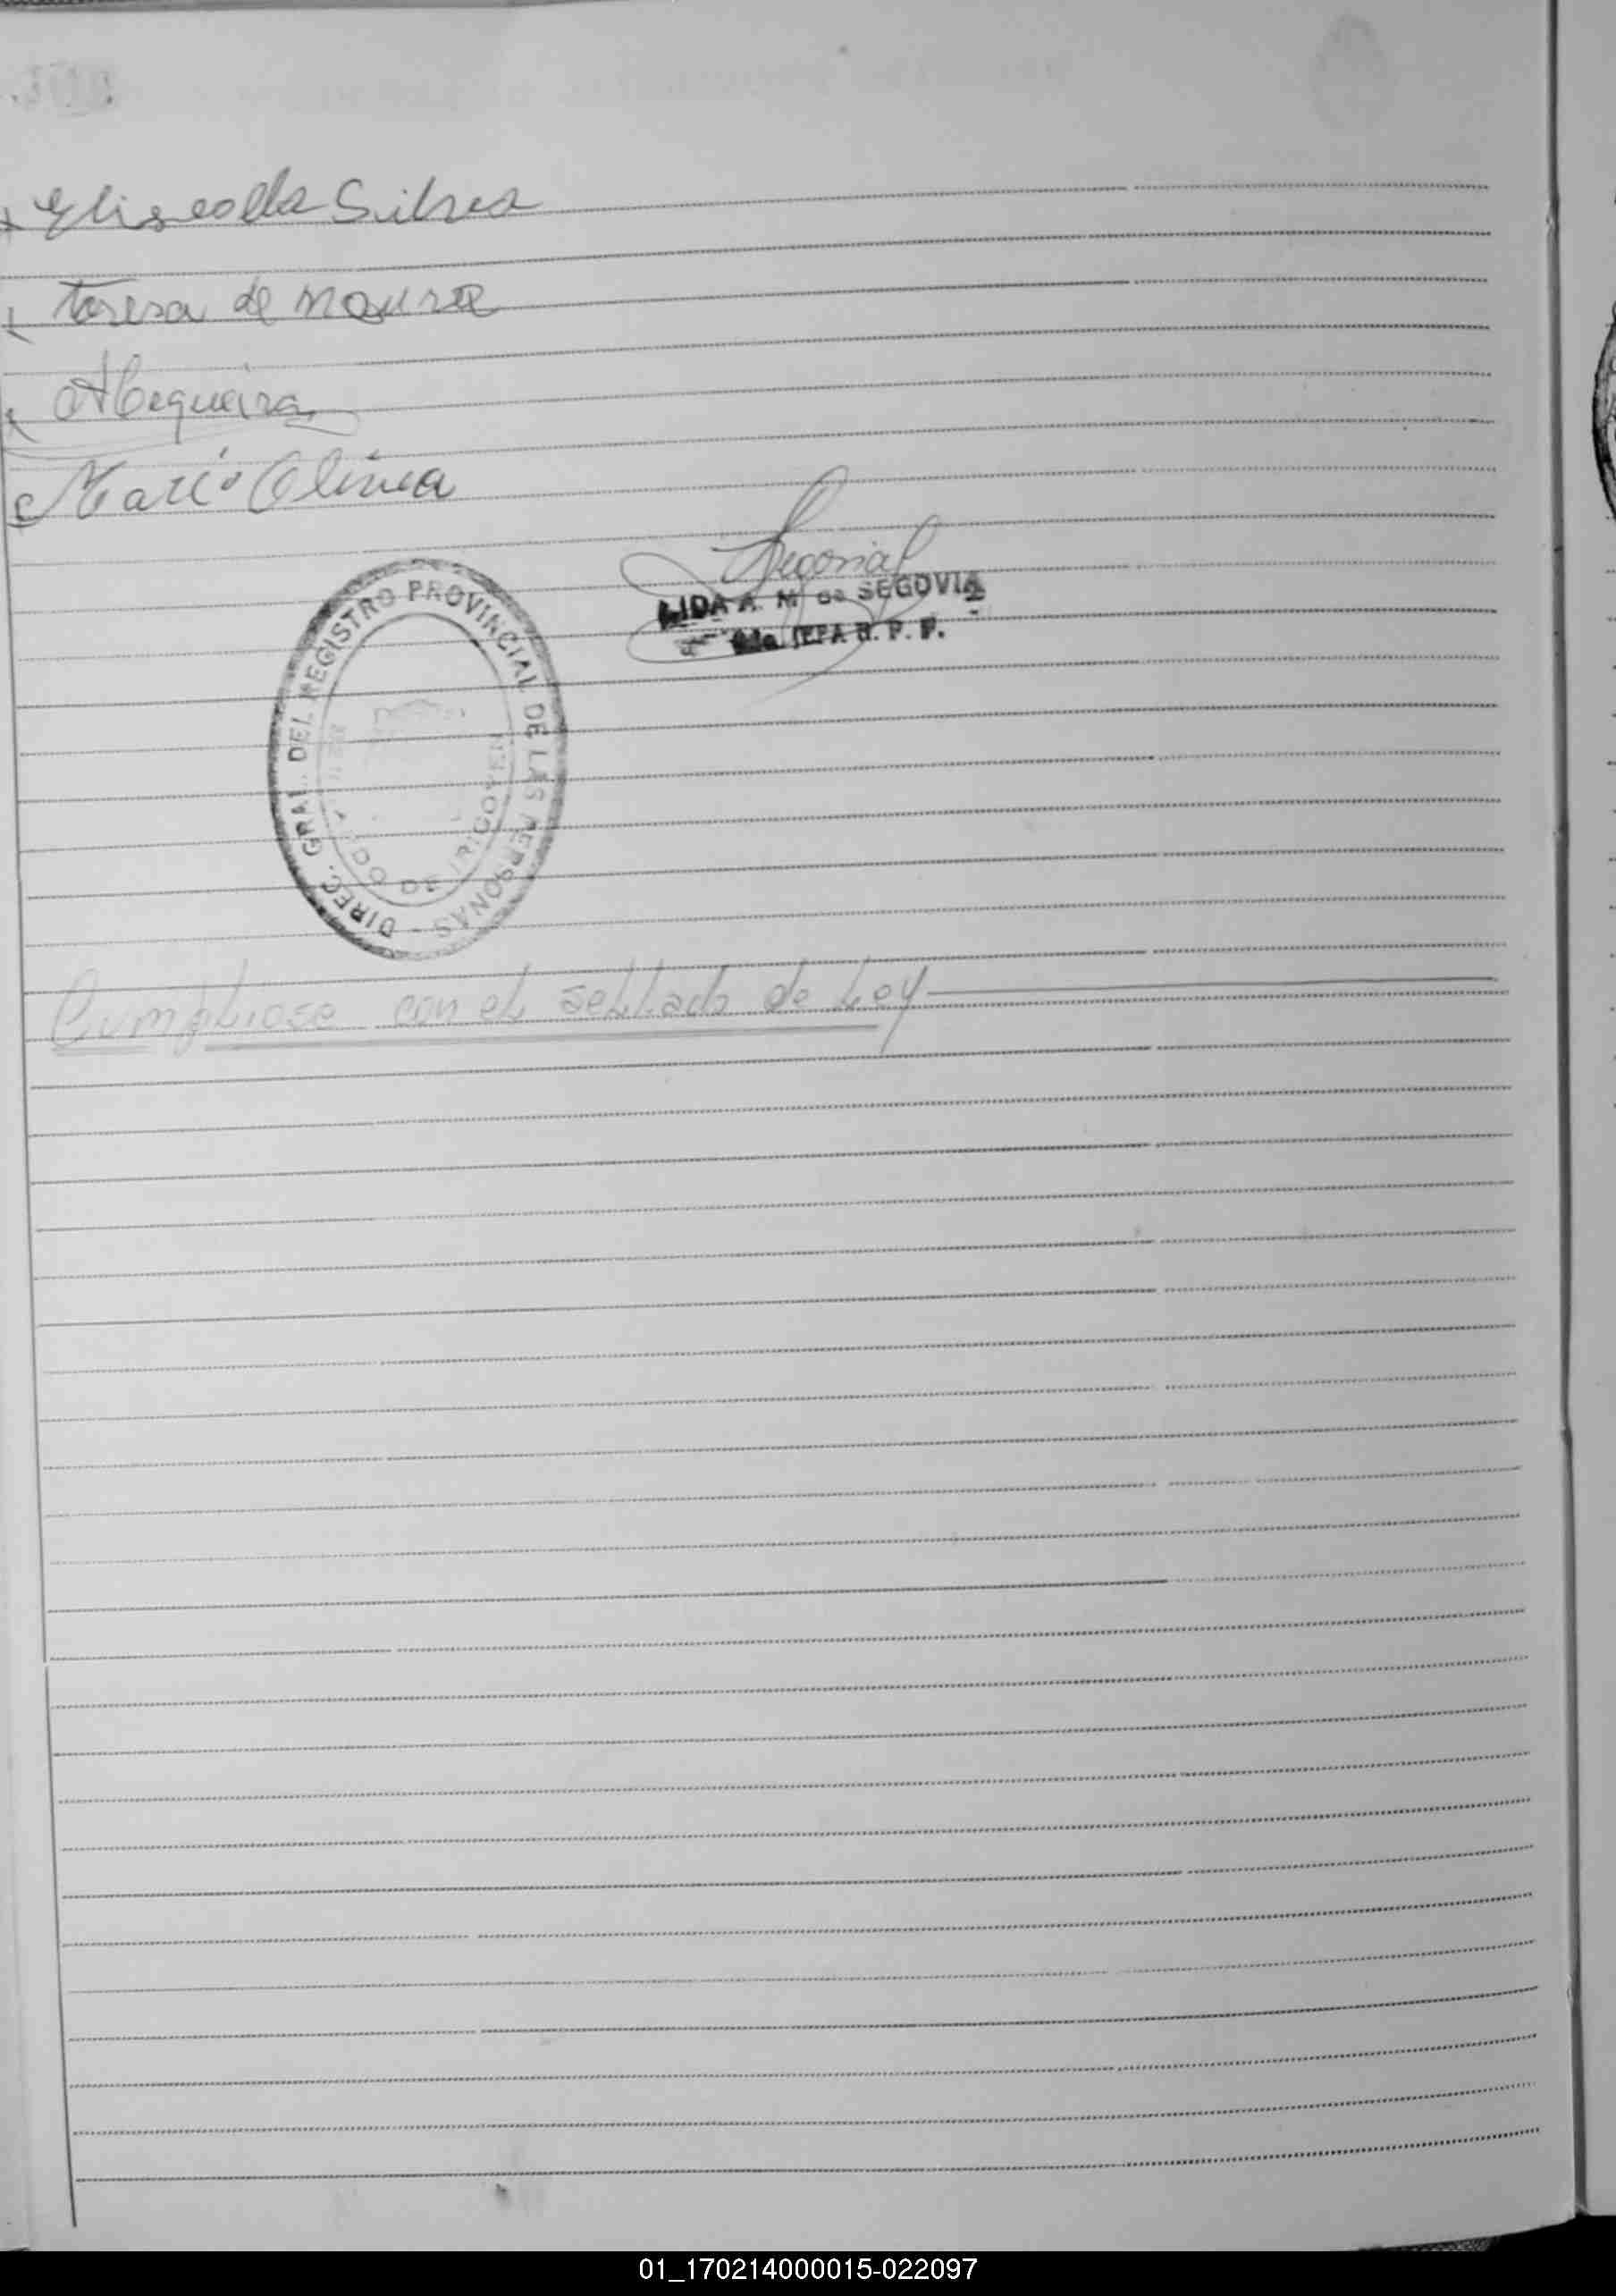 Eliseo da Silva
Teresa de moura
A Cequeira
Mario Olivea
Segovia
LIDA A. M de SEGOVIA
JEFA R. P. P.
DIREC. GRAL. DEL REGISTRO PROVINCIAL DE LAS PERSONAS -
DO DE IRIGOYEN
Cumpliose con el sellado de Ley
01_170214000015-022097